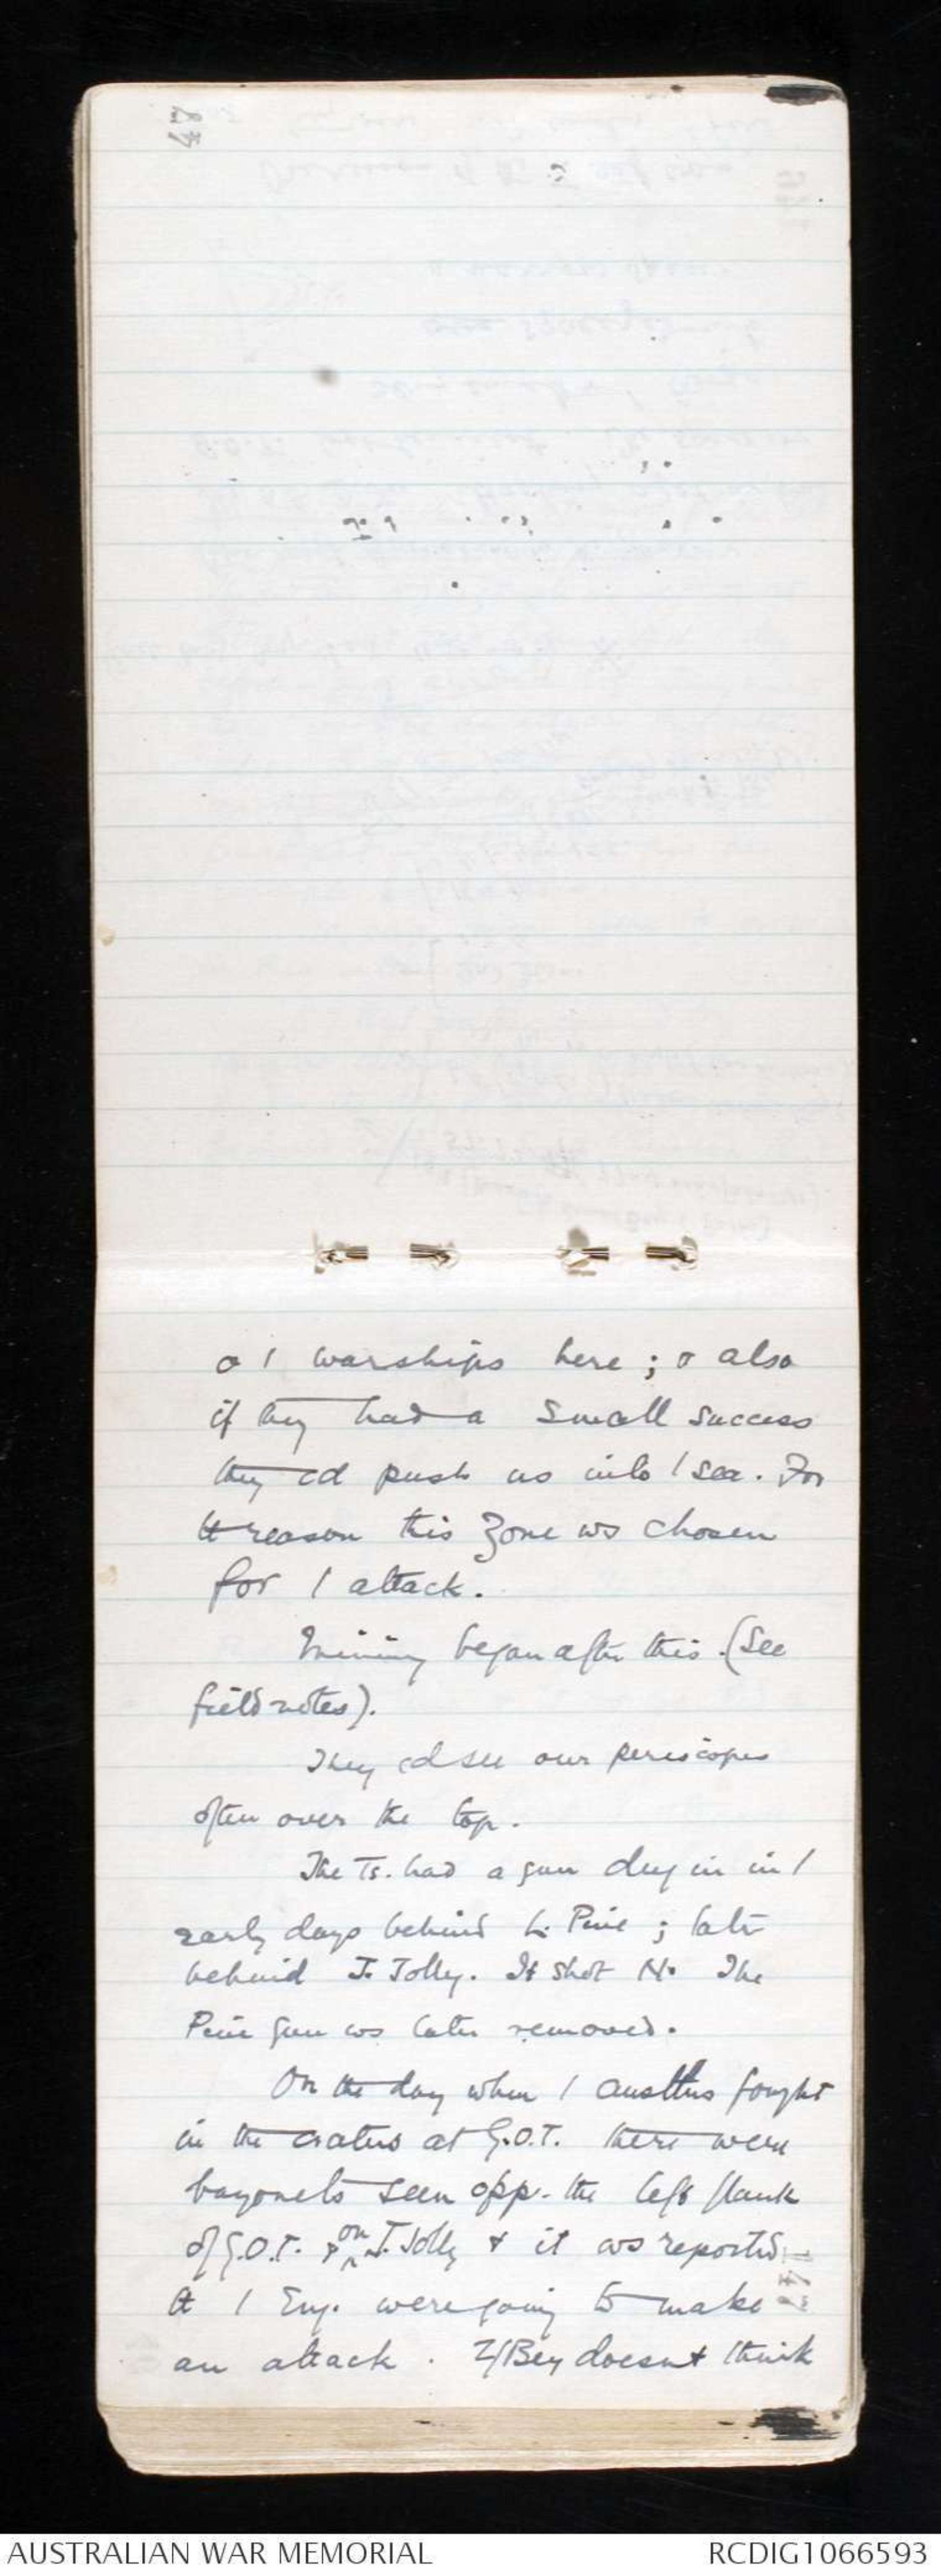 48
o / warships here ; o also
if they had a small success
they cd push us into / sea. For
tt reason this zone ws chosen
for / attack.
Mining began after this. (See
field notes).
They cd see our periscopes
often over the top.
The Ts. had a gun dug in in /
early days behind L. Pine ; later
behind J. Jolly. It shot N. The
Pine gun ws later removed.
On the day when / Austlns fought
in the craters at G.O.T. there were
bayonets seen opp. the left flank
of G.O.T. on J. Jolly & it ws reported
tt / Eng. were going to make
an attack. Z/Bey doesnt think
AUSTRALIAN WAR MEMORIAL
RCDIG1066593